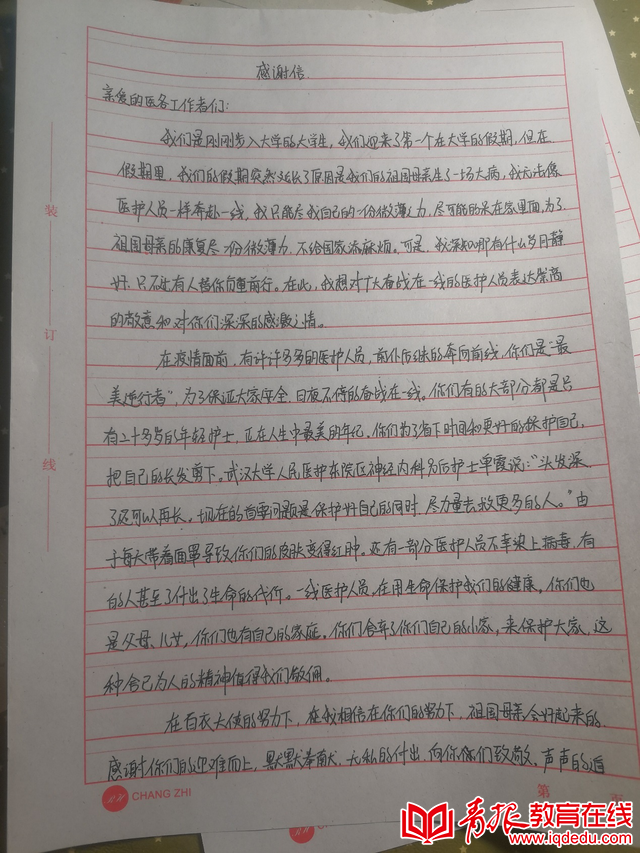 感谢信
亲爱的医务工作者们：
我们是刚刚步入大学的大学生，我们迎来了第一个在大学的假期，但在
假期里，我们的假期突然延长了原因是我们的祖国母亲生了一场大病，我无法像
医护人员一样奔赴一线，我只能尽我自己的一份微薄之力，尽可能的呆在家里面，为了
祖国母亲的康复尽一份微薄力，不给国家添麻烦。可是，我深知哪有什么岁月静
好，只不过有人替你负重前行。在此，我想对广大奋战在一线的医护人员表达崇高
的敬意和对你们深深的感激之情。
在疫情面前，有许许多多的医护人员，前仆后继的奔向前线，你们是“最
美逆行者”，为了保证大家安全，日夜不停的奋战在一线。你们有的大部分都是只
有二十多岁的年轻护士，正在人生中最美的年纪，你们为了省下时间和更好的保护自己，
把自己的长发剪下。武汉大学人民医护东院区神经内科的护士单霞说：“头发深
了还可以再长。现在的首要问题是保护好自己的同时，尽力量去救更多的人。”由
于每天带着面罩导致你们的皮肤变得红肿。还有一部分医护人员不幸染上病毒，有
的人甚至了付出了生命的代价。一线医护人员，在用生命保护我们的健康。你们也
是父母、儿女，你们也有自己的家庭。你们舍弃了你们自己的小家，来保护大家，这
种舍己为人的精神值得我们敬佩。
在白衣大侠的努力下，在我相信在你们的努力下，祖国母亲会好起来的。
感谢你们的迎难而上，默默奉献，无私的付出，向你们致敬。声声的道
装
订
线
CHANG ZHI
第
CHANG
青报教育在线
www.iqdedu.com